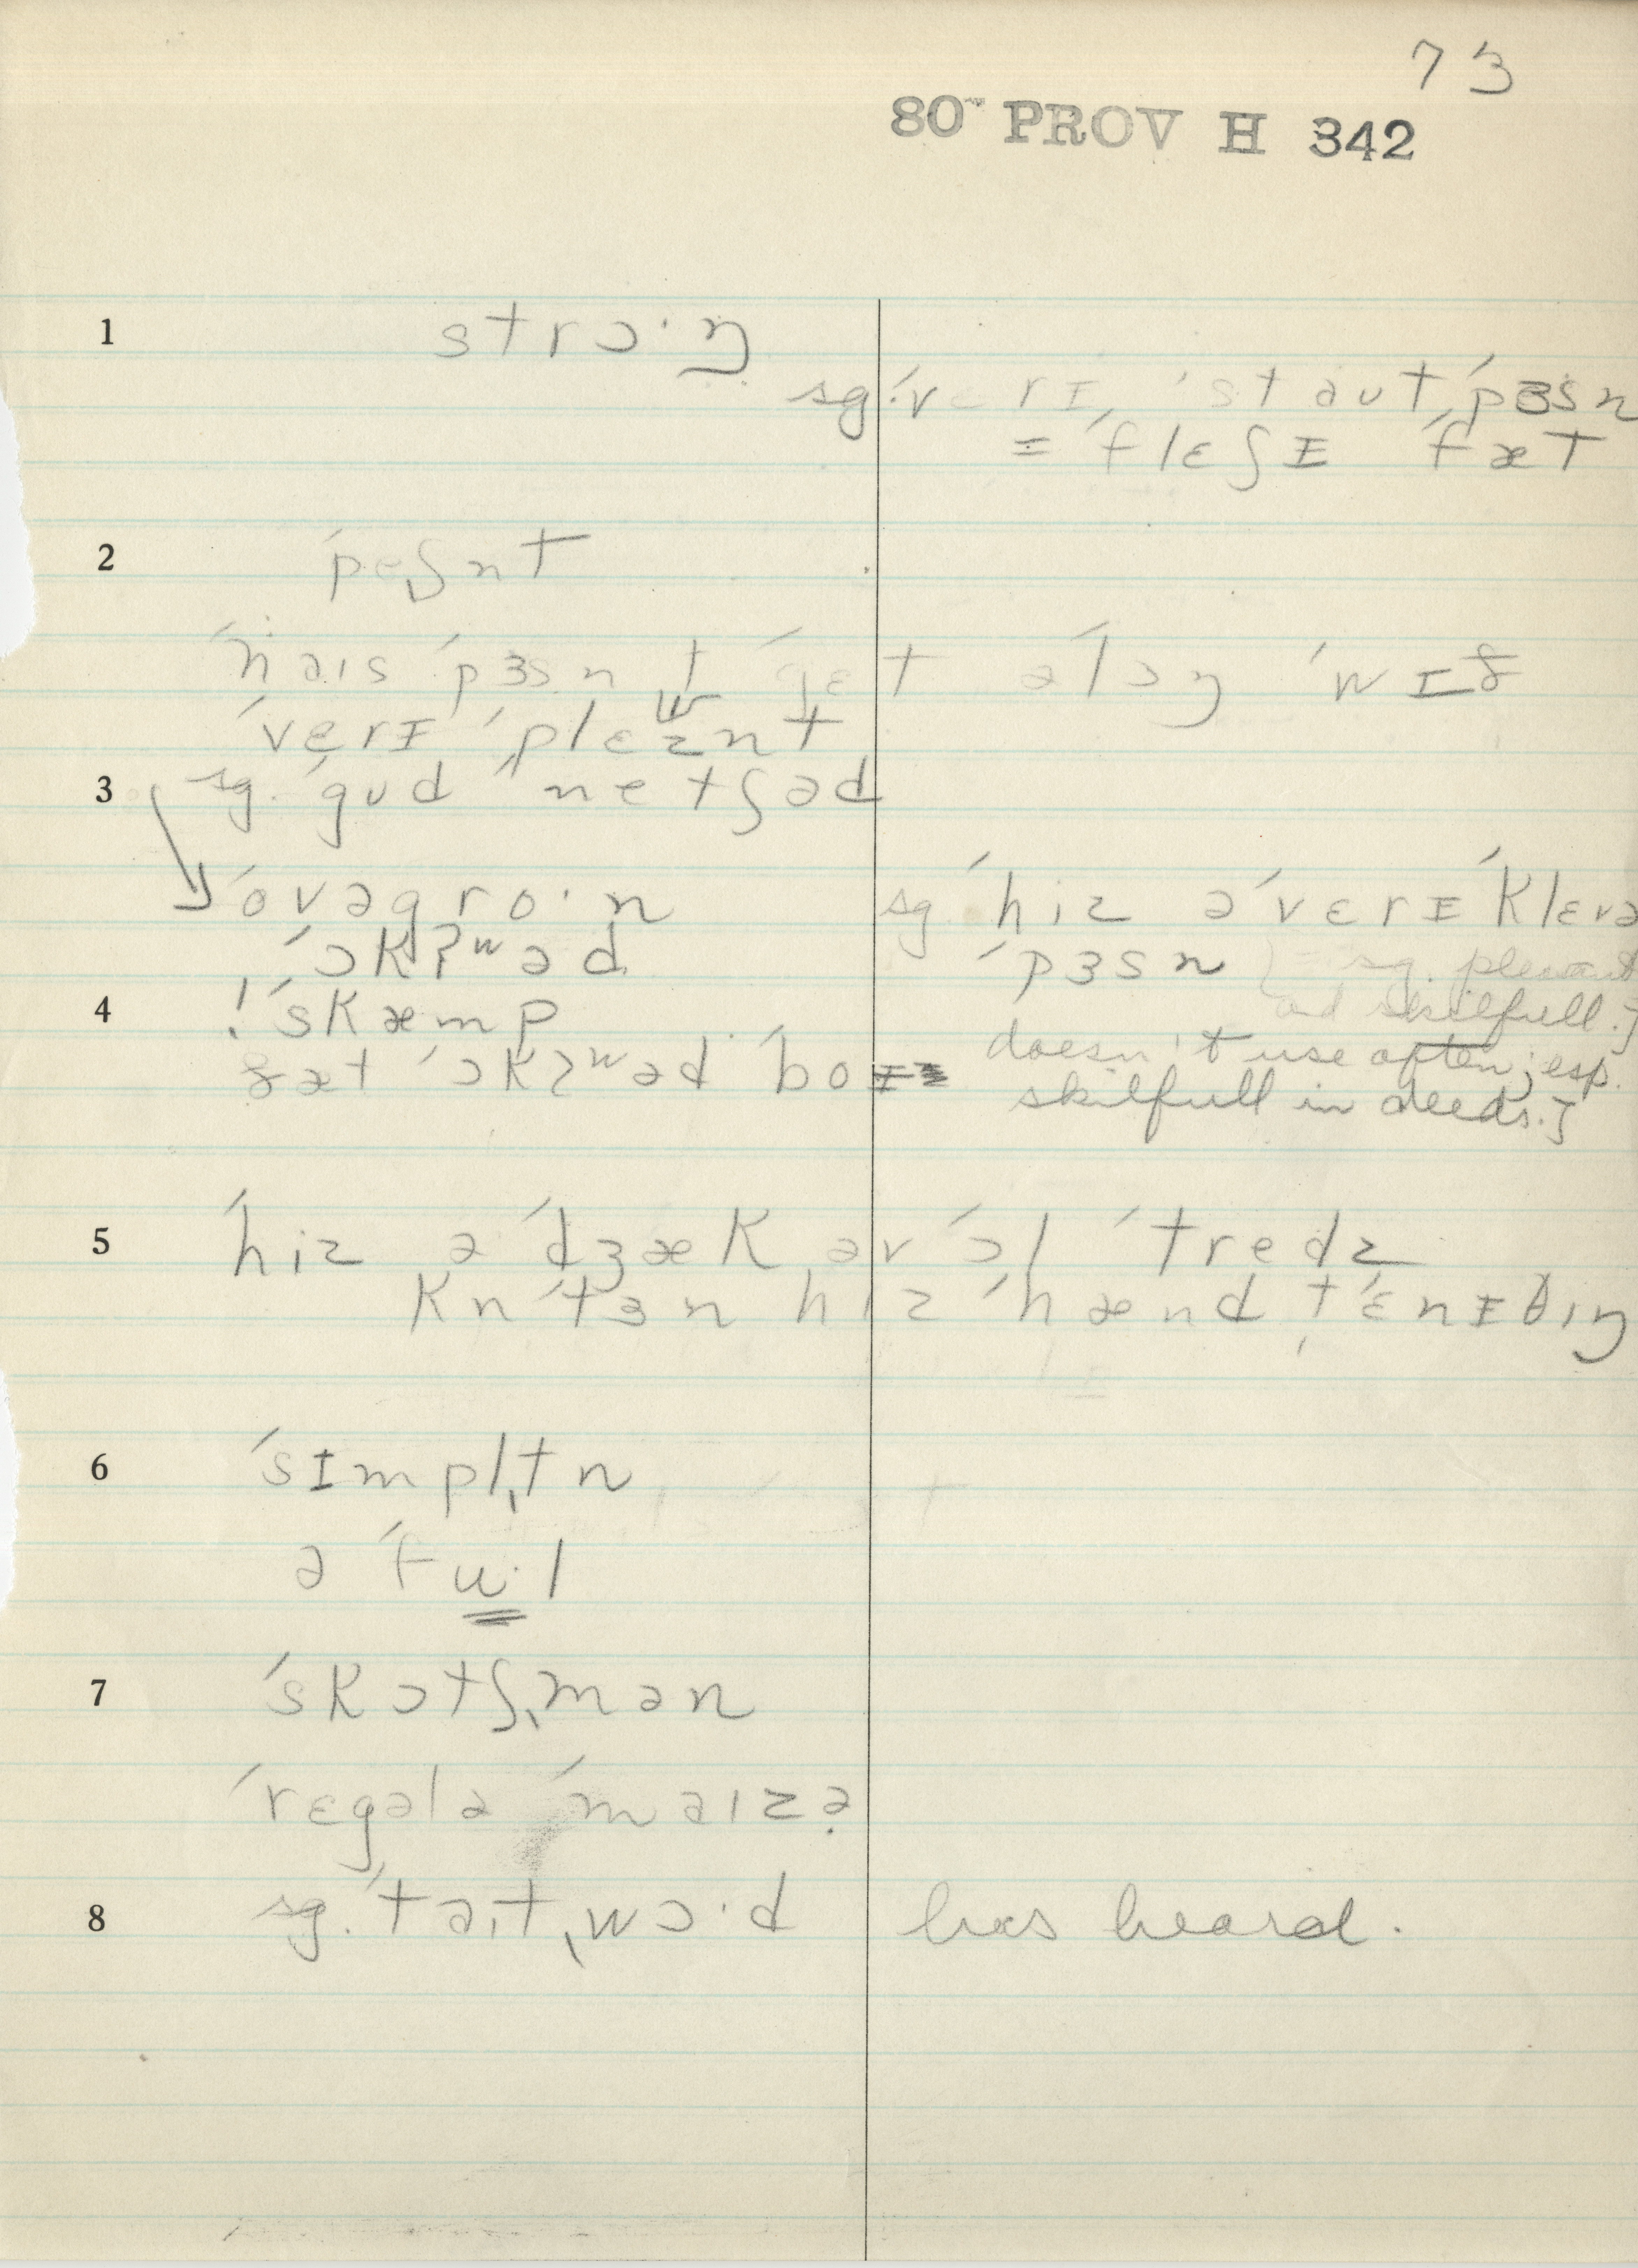 73
80~ PROV H 342
1 strɔ·ŋ
sg. ˈvɛrɪ ˈstaʊt ˈpɜsn
= ˈflɛʃɪ ˈfæt
2 ˈpeˌʃnt
ˈnaɪs ˈpɜsn t ˈgɛt əˈlɔŋ ˈwɪð
ˈvɛrɪ ˈplɛznt
3 sg. ˈgʊd ˈˌnetʃəd
ˈovəgro·n
ˈɔkʔʷəd
sg. ˈhiz ə ˈvɛrɪ ˈklɛvə
ˈpɜsn } = sg. pleasant
and skilfull.]
4 ! ˈskæmp
ðæt ˈɔkʔʷəd ˈboɪ
doesn't use often; esp.
skilfull in deeds.]
5 ˈhiz ə ˈdʒæk əv ˈɔl ˈtredz
kn ˈtɜn hɪz ˈhænd t ˈɛnɪθɪŋ
6 ˈsɪmplˌtn
ə ˈfu·l
7 ˈskɔtʃˌmən
ˈrɛgələ ˈmaɪzə
8 sg. ˈtaɪtˌwɔ·d has heard.